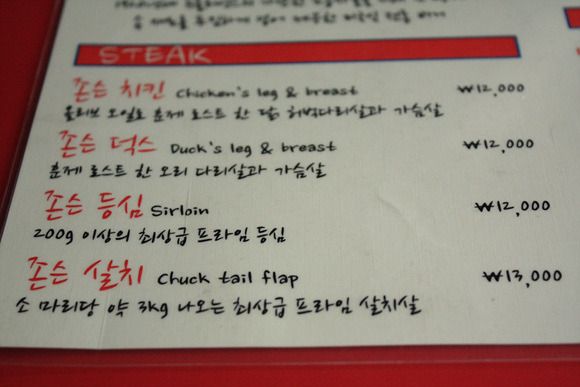 STEAK
존슨 치킨 Chicken's leg & breast ₩12,000
올리브 오일로 훈제 로스트 한 닭 허벅다리살과 가슴살
존슨 덕스 Duck's leg & breast ₩12,000
훈제 로스트 한 오리 다리살과 가슴살
존슨 등심 Sirloin ₩12,000
200g 이상의 최상급 프라임 등심
존슨 살치 Chuck tail flap ₩13,000
소 마리당 약 3kg 나오는 최상급 프라임 살치살